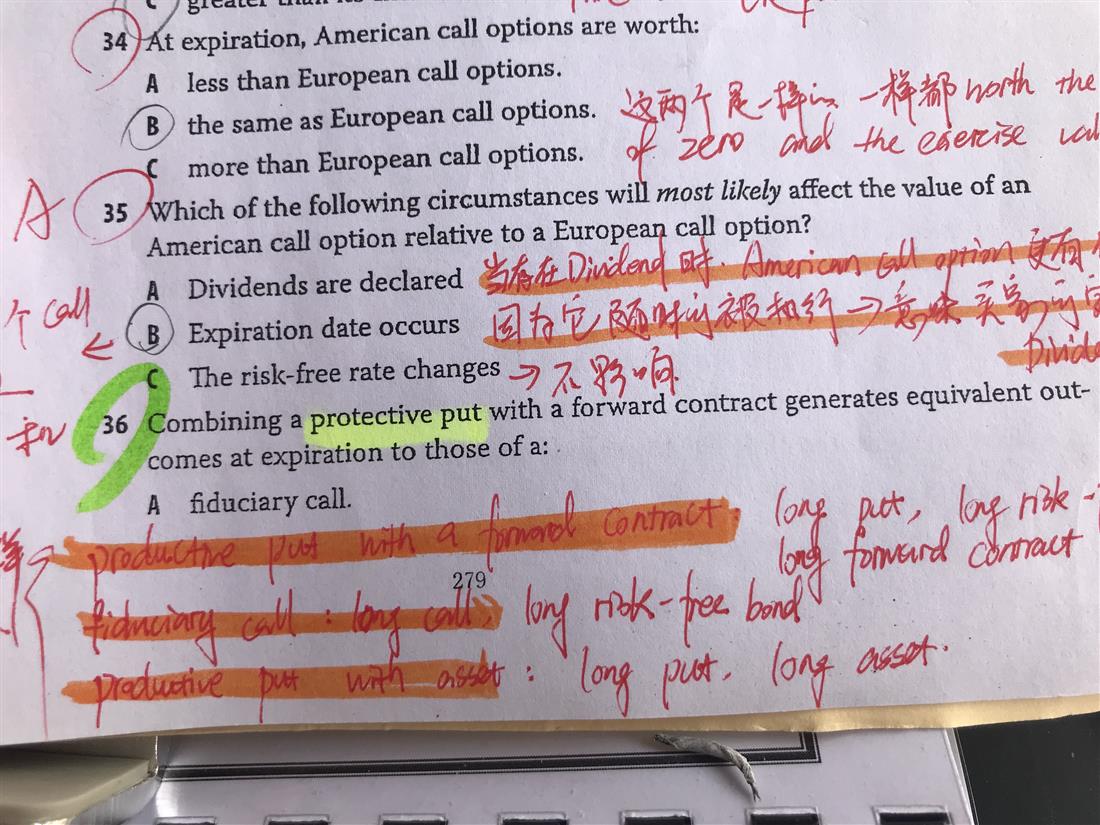 C greater than its
34 At expiration, American call options are worth:
A less than European call options.
B the same as European call options.
这两个是一样的 一样都 worth the
C more than European call options.
of zero and the exercise val
A
35 Which of the following circumstances will most likely affect the value of an
American call option relative to a European call option?
A Dividends are declared
当存在Dividend时. American call option 更有
个 call
B Expiration date occurs
因为它随时可被执行 → 意味买家可
Divide
C The risk-free rate changes → 不影响
和
36 Combining a protective put with a forward contract generates equivalent out-
comes at expiration to those of a:
A fiduciary call.
productive put with a forward contract: long put, long risk-
long forward contract
279
fiduciary call : long call, long risk-free bond
productive put with asset : long put. long asset.